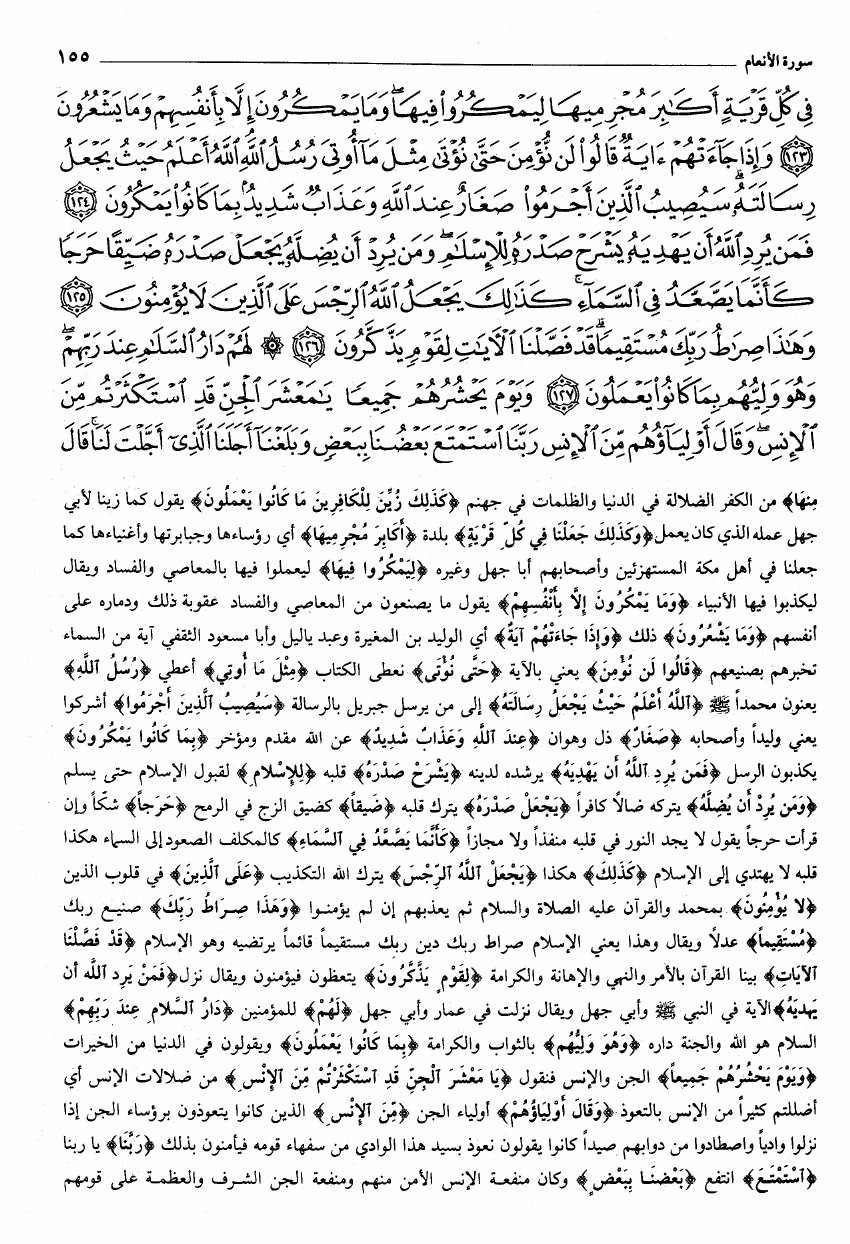 سورة الأنعام ١٥٥
فِي كُلِّ قَرْيَةٍ أَكَٰبِرَ مُجْرِمِيهَا لِيَمْكُرُوا۟ فِيهَا ۖ وَمَا يَمْكُرُونَ إِلَّا بِأَنفُسِهِمْ وَمَا يَشْعُرُونَ
﴿١٢٣﴾ وَإِذَا جَآءَتْهُمْ ءَايَةٌ قَالُوا۟ لَن نُّؤْمِنَ حَتَّىٰ نُؤْتَىٰ مِثْلَ مَآ أُوتِىَ رُسُلُ ٱللَّهِ ۘ ٱللَّهُ أَعْلَمُ حَيْثُ يَجْعَلُ
رِسَالَتَهُۥ ۗ سَيُصِيبُ ٱلَّذِينَ أَجْرَمُوا۟ صَغَارٌ عِندَ ٱللَّهِ وَعَذَابٌ شَدِيدٌۢ بِمَا كَانُوا۟ يَمْكُرُونَ ﴿١٢٤﴾
فَمَن يُرِدِ ٱللَّهُ أَن يَهْدِيَهُۥ يَشْرَحْ صَدْرَهُۥ لِلْإِسْلَٰمِ ۖ وَمَن يُرِدْ أَن يُضِلَّهُۥ يَجْعَلْ صَدْرَهُۥ ضَيِّقًا حَرَجًا
كَأَنَّمَا يَصَّعَّدُ فِى ٱلسَّمَآءِ ۚ كَذَٰلِكَ يَجْعَلُ ٱللَّهُ ٱلرِّجْسَ عَلَى ٱلَّذِينَ لَا يُؤْمِنُونَ ﴿١٢٥﴾
وَهَٰذَا صِرَٰطُ رَبِّكَ مُسْتَقِيمًا ۗ قَدْ فَصَّلْنَا ٱلْءَايَٰتِ لِقَوْمٍ يَذَّكَّرُونَ ﴿١٢٦﴾ ۞ لَهُمْ دَارُ ٱلسَّلَٰمِ عِندَ رَبِّهِمْ ۖ
وَهُوَ وَلِيُّهُم بِمَا كَانُوا۟ يَعْمَلُونَ ﴿١٢٧﴾ وَيَوْمَ يَحْشُرُهُمْ جَمِيعًا يَٰمَعْشَرَ ٱلْجِنِّ قَدِ ٱسْتَكْثَرْتُم مِّنَ
ٱلْإِنسِ ۖ وَقَالَ أَوْلِيَآؤُهُم مِّنَ ٱلْإِنسِ رَبَّنَا ٱسْتَمْتَعَ بَعْضُنَا بِبَعْضٍ وَبَلَغْنَآ أَجَلَنَا ٱلَّذِىٓ أَجَّلْتَ لَنَا ۚ قَالَ
مِنهَا﴾ من الكفر الضلالة في الدنيا والظلمات في جهنم ﴿كَذَلِكَ زُيِّنَ لِلْكَافِرِينَ مَا كَانُوا يَعْمَلُونَ﴾ يقول كما زينا لأبي
جهل عمله الذي كان يعمل ﴿وَكَذَلِكَ جَعَلْنَا فِي كُلِّ قَرْيَةٍ﴾ بلدة ﴿أَكَابِرَ مُجْرِمِيهَا﴾ أي رؤساءها وجبابرتها وأغنياءها كما
جعلنا في أهل مكة المستهزئين وأصحابهم أبا جهل وغيره ﴿لِيَمْكُرُوا فِيهَا﴾ ليعملوا فيها بالمعاصي والفساد ويقال
ليكذبوا فيها الأنبياء ﴿وَمَا يَمْكُرُونَ إِلَّا بِأَنْفُسِهِمْ﴾ يقول ما يصنعون من المعاصي والفساد عقوبة ذلك ودماره على
أنفسهم ﴿وَمَا يَشْعُرُونَ﴾ ذلك ﴿وَإِذَا جَاءَتْهُمْ آيَةٌ﴾ أي الوليد بن المغيرة وعبد ياليل وأبا مسعود الثقفي آية من السماء
تخبرهم بصنيعهم ﴿قَالُوا لَن نُؤْمِنَ﴾ يعني بالآية ﴿حَتَّى نُؤْتَى﴾ نعطى الكتاب ﴿مِثْلَ مَا أُوتِي﴾ أعطي ﴿رُسُلُ ٱللَّهِ﴾
يعنون محمداً ﷺ ﴿ٱللَّهُ أَعْلَمُ حَيْثُ يَجْعَلُ رِسَالَتَهُ﴾ إلى من يرسل جبريل بالرسالة ﴿سَيُصِيبُ ٱلَّذِينَ أَجْرَمُوا﴾ أشركوا
يعني وليداً وأصحابه ﴿صَغَارٌ﴾ ذل وهوان ﴿عِنْدَ ٱللَّهِ وَعَذَابٌ شَدِيدٌ﴾ عن الله مقدم ومؤخر ﴿بِمَا كَانُوا يَمْكُرُونَ﴾
يكذبون الرسل ﴿فَمَن يُرِدِ ٱللَّهُ أَن يَهْدِيَهُ﴾ يرشده لدينه ﴿يَشْرَحْ صَدْرَهُ﴾ قلبه ﴿لِلإِسْلامِ﴾ لقبول الإسلام حتى يسلم
﴿وَمَن يُرِدْ أَن يُضِلَّهُ﴾ يتركه ضالاً كافراً ﴿يَجْعَلْ صَدْرَهُ﴾ يترك قلبه ﴿ضَيقاً﴾ كضيق الزج في الرمح ﴿حَرَجاً﴾ شكّاً وإن
قرأت حرجاً يقول لا يجد النور في قلبه منفذاً ولا مجازاً ﴿كَأَنَّمَا يَصَّعَّدُ فِي ٱلسَّمَاءِ﴾ كالمكلف الصعود إلى السماء هكذا
قلبه لا يهتدي إلى الإسلام ﴿كَذَلِكَ﴾ هكذا ﴿يَجْعَلُ ٱللَّهُ ٱلرِّجْسَ﴾ يترك الله التكذيب ﴿عَلَى ٱلَّذِينَ﴾ في قلوب الذين
﴿لا يُؤْمِنُونَ﴾ بمحمد والقرآن عليه الصلاة والسلام ثم يعذبهم إن لم يؤمنوا ﴿وَهَذَا صِرَاطُ رَبِّكَ﴾ صنيع ربك
﴿مُسْتَقِيماً﴾ عدلاً ويقال وهذا يعني الإسلام صراط ربك دين ربك مستقيماً قائماً يرتضيه وهو الإسلام ﴿قَدْ فَصَّلْنَا
ٱلآيَاتِ﴾ بينا القرآن بالأمر والنهي والإهانة والكرامة ﴿لِقَوْمٍ يَذَّكَّرُونَ﴾ يتعظون فيؤمنون ويقال نزل ﴿فَمَنْ يَرِد ٱللَّه أن
يَهدِيَهُ﴾ الآية في النبي ﷺ وأبي جهل ويقال نزلت في عمار وأبي جهل ﴿لَهُمْ﴾ للمؤمنين ﴿دَارُ ٱلسَّلامِ عِنْدَ رَبِّهِمْ﴾
السلام هو الله والجنة داره ﴿وَهُوَ وَلِيُّهُم﴾ بالثواب والكرامة ﴿بِمَا كَانُوا يَعْمَلُونَ﴾ ويقولون في الدنيا من الخيرات
﴿وَيَوْمَ يَحْشُرُهُمْ جَمِيعاً﴾ الجن والإنس فنقول ﴿يَا مَعْشَرَ ٱلْجِنِّ قَدِ ٱسْتَكْثَرْتُمْ مِّنَ ٱلإِنْسِ﴾ من ضلالات الإنس أي
أضللتم كثيراً من الإنس بالتعوذ ﴿وَقَالَ أَوْلِيَاؤُهُمْ﴾ أولياء الجن ﴿مِّنَ ٱلإِنْسِ﴾ الذين كانوا يتعوذون برؤساء الجن إذا
نزلوا وادياً واصطادوا من دوابهم صيداً كانوا يقولون نعوذ بسيد هذا الوادي من سفهاء قومه فيأمنون بذلك ﴿رَبَّنَا﴾ يا ربنا
﴿ٱسْتَمْتَعَ﴾ انتفع ﴿بَعْضُنَا بِبَعْضٍ﴾ وكان منفعة الإنس الأمن منهم ومنفعة الجن الشرف والعظمة على قومهم